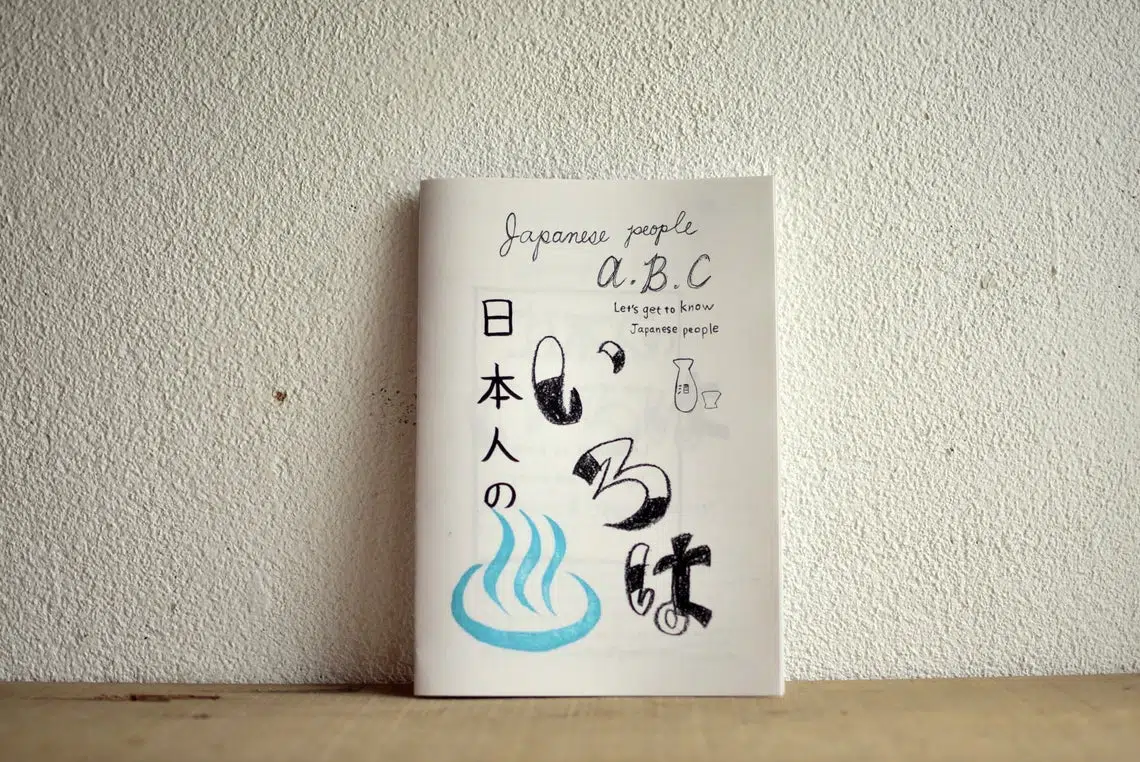 Japanese people
A.B.C
Let's get to know
Japanese people
日本人の
いろは
酒